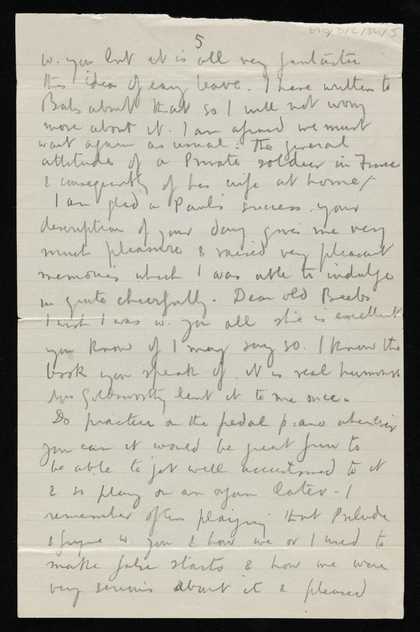 5
w. you but it is all very fantastic
this idea of easy leave. I have written to
Babs about that so I will not worry
more about it. I am afraid we must
wait again as usual: the general
attitude of a Private soldier in France
& consequently of his wife at home/
I am glad of Paul's success. your
description of your day gives me very
much pleasure & raised very pleasant
memories which I was able to indulge
in quite cheerfully. Dear old Beebs
I wish I was w. you all she is excellent
you know if I may say so. I know the
book you speak of, it is real humour
Mrs Goldsworthy lent it to me once.
Do practice on the pedal piano whenever
you can it would be great fun to
be able to get well accustomed to it
& so play on an organ later. I
remember often playing that Prelude
& fugue w. you & how we or I used to
make false starts & how we were
very serious about it & pleased